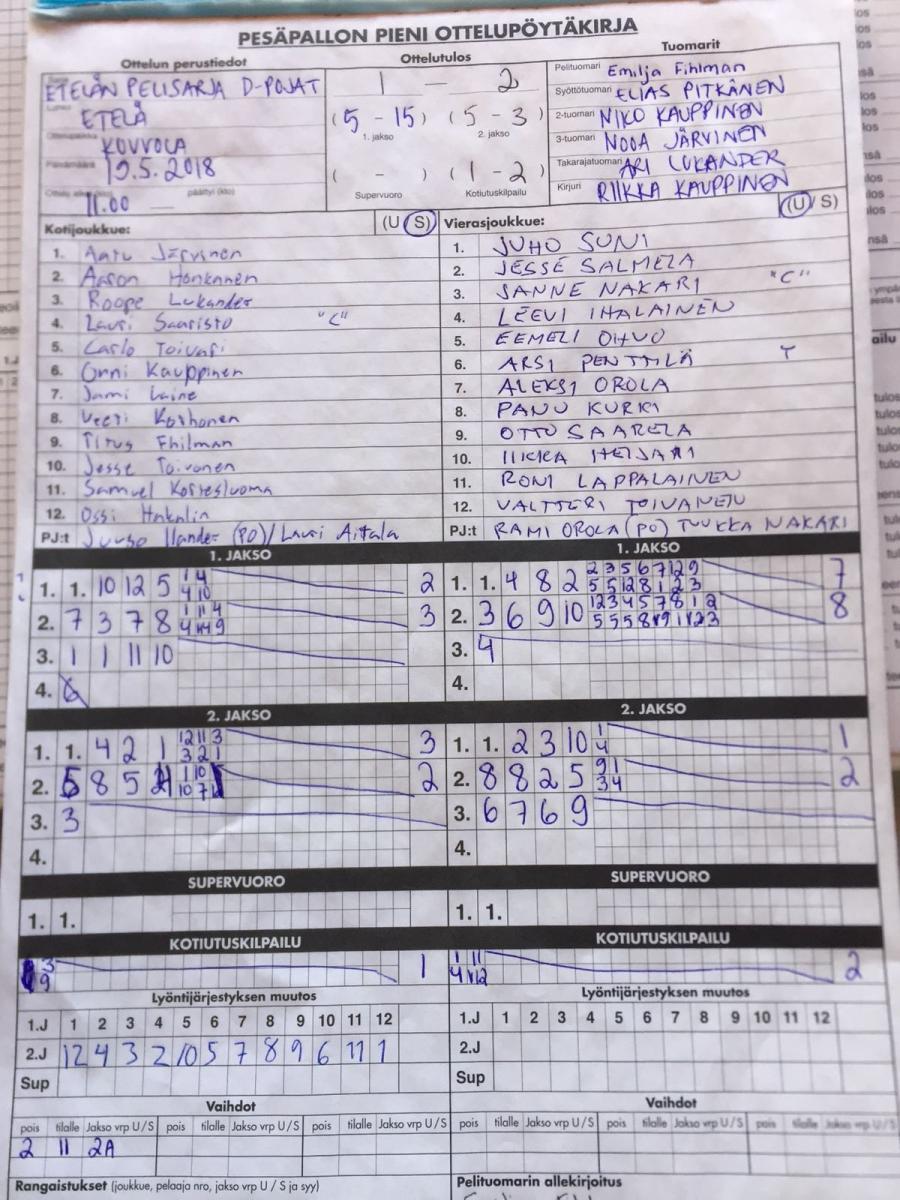 PESÄPALLON PIENI OTTELUPÖYTÄKIRJA
Ottelun perustiedot
ETELÄN PELISARJA D-POJAT
ETELÄ
KOUVOLA
19.5.2018
11.00
Ottelutulos
1 - 2
(5 - 15) (5 - 3)
1. jakso 2. jakso
( - ) (1 - 2)
Supervuoro Kotiutuskilpailu
Tuomarit
Pelituomari Emilja Fihlman
Syöttötuomari ELIAS PITKÄNEN
2-tuomari NIKO KAUPPINEN
3-tuomari NOOA JÄRVINEN
Takarajatuomari ARI LUKANDER
Kirjuri RIIKKA KAUPPINEN
Kotijoukkue: (U S)
1. Aatu Järvinen
2. Aaron Honkanen
3. Roope Lukander
4. Lauri Saaristo "C"
5. Carlo Toivari
6. Onni Kauppinen
7. Jami Laine
8. Veeti Korhonen
9. Titus Fhilman
10. Jesse Toivonen
11. Samuel
12. Ossi
PJ:t (PO) / Lauri Aitala
Vierasjoukkue: (U/S)
1. JUHO SUNI
2. JESSE SALMELA
3. SANNE NAKARI "C"
4. LEEVI IHALAINEN
5. EEMELI OIHUO
6. ARSI PENTTILÄ T
7. ALEKSI OROLA
8. PANU KURKI
9. OTTO SAARELA
10. IIKKA
11. RONI LAPPALAINEN
12. VALTTERI TOIVANEN
PJ:t RAMI OROLA (PO) TUUKKA NAKARI
1. JAKSO
1. 1. 10 12 5 1 4 2
4 10
2. 7 3 7 8 1 11 4 3
3. 1 1 11 10
4.
1. JAKSO
1. 1. 4 8 2 2 3 5 6 7 12 9 7
5 5 12 8 1 2 3
2. 3 6 9 10 1 2 3 4 5 7 8 1 2 8
3. 4
4.
2. JAKSO
1. 1. 4 2 1 12 11 3 3
3 2 1
2. 8 5 1 10 2
3. 3
4.
2. JAKSO
1. 1. 2 3 10 1 1
4
2. 8 8 2 5 9 1 2
3 4
3. 6 7 6 9
4.
SUPERVUORO
1. 1.
SUPERVUORO
1. 1.
KOTIUTUSKILPAILU
3 1
9
KOTIUTUSKILPAILU
1 11 2
4 12
Lyöntijärjestyksen muutos
1.J 1 2 3 4 5 6 7 8 9 10 11 12
2.J 12 4 3 2 10 5 7 8 9 6 11 1
Sup
Lyöntijärjestyksen muutos
1.J 1 2 3 4 5 6 7 8 9 10 11 12
2.J
Sup
Vaihdot
pois tilalle Jakso vrp U/S pois tilalle Jakso vrp U/S pois tilalle Jakso vrp U/S
2 11 2A
Vaihdot
pois tilalle Jakso vrp U/S pois tilalle Jakso vrp U/S pois tilalle Jakso vrp U/S
Rangaistukset (joukkue, pelaaja nro, jakso vrp U / S ja syy)
Pelituomarin allekirjoitus